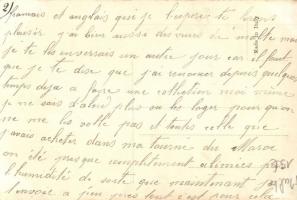 2/ français et anglais qui je l'espère te feront
plaisir j'ai bien aussi des vues de malte mais
je te les enverrais un autre jour car il faut
que je te dise que j'ai renoncé depuis quelque
temps déjà a faire une collection moi même
je ne sais d'abord plus ou les loger pour qu'on
ne me les vole pas et toutes celle que
j'avais acheter dans ma tournée du Maroc
on été presque complètement abimées par
l'humidité de sorte que maintenant je
l'envoie a peu près tout c'est pour cela
Made in Italy